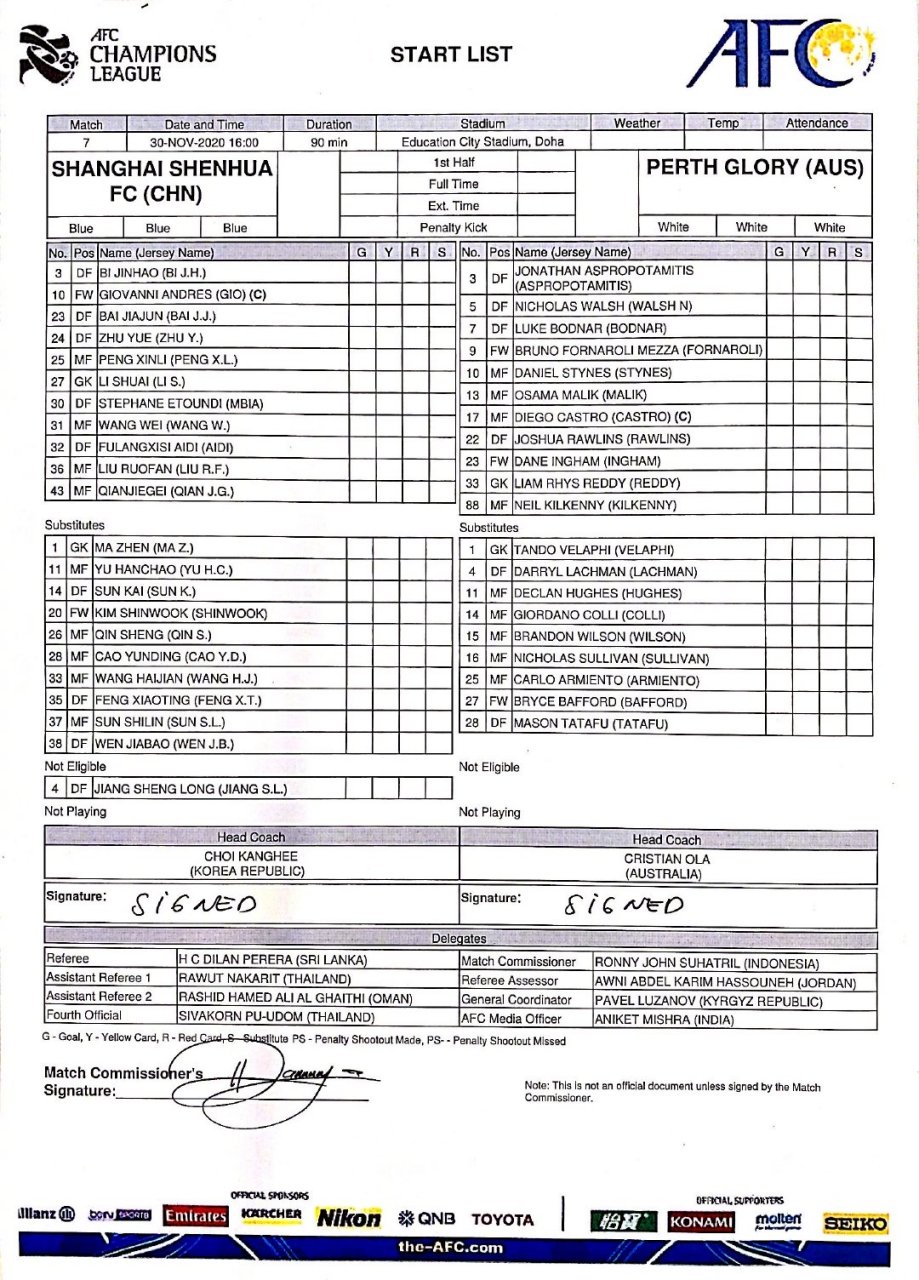 AFC
CHAMPIONS
LEAGUE
START LIST
AFC
Match Date and Time Duration Stadium Weather Temp Attendance
7 30-NOV-2020 16:00 90 min Education City Stadium, Doha
SHANGHAI SHENHUA
FC (CHN)
1st Half
Full Time
Ext. Time
Penalty Kick
PERTH GLORY (AUS)
Blue Blue Blue
White White White
No. Pos Name (Jersey Name) G Y R S
3 DF BI JINHAO (BI J.H.)
10 FW GIOVANNI ANDRES (GIO) (C)
23 DF BAI JIAJUN (BAI J.J.)
24 DF ZHU YUE (ZHU Y.)
25 MF PENG XINLI (PENG X.L.)
27 GK LI SHUAI (LI S.)
30 DF STEPHANE ETOUNDI (MBIA)
31 MF WANG WEI (WANG W.)
32 DF FULANGXISI AIDI (AIDI)
36 MF LIU RUOFAN (LIU R.F.)
43 MF QIANJIEGEI (QIAN J.G.)
Substitutes
1 GK MA ZHEN (MA Z.)
11 MF YU HANCHAO (YU H.C.)
14 DF SUN KAI (SUN K.)
20 FW KIM SHINWOOK (SHINWOOK)
26 MF QIN SHENG (QIN S.)
28 MF CAO YUNDING (CAO Y.D.)
33 MF WANG HAIJIAN (WANG H.J.)
35 DF FENG XIAOTING (FENG X.T.)
37 MF SUN SHILIN (SUN S.L.)
38 DF WEN JIABAO (WEN J.B.)
Not Eligible
4 DF JIANG SHENG LONG (JIANG S.L.)
Not Playing
No. Pos Name (Jersey Name) G Y R S
3 DF JONATHAN ASPROPOTAMITIS
(ASPROPOTAMITIS)
5 DF NICHOLAS WALSH (WALSH N)
7 DF LUKE BODNAR (BODNAR)
9 FW BRUNO FORNAROLI MEZZA (FORNAROLI)
10 MF DANIEL STYNES (STYNES)
13 MF OSAMA MALIK (MALIK)
17 MF DIEGO CASTRO (CASTRO) (C)
22 DF JOSHUA RAWLINS (RAWLINS)
23 FW DANE INGHAM (INGHAM)
33 GK LIAM RHYS REDDY (REDDY)
88 MF NEIL KILKENNY (KILKENNY)
Substitutes
1 GK TANDO VELAPHI (VELAPHI)
4 DF DARRYL LACHMAN (LACHMAN)
11 MF DECLAN HUGHES (HUGHES)
14 MF GIORDANO COLLI (COLLI)
15 MF BRANDON WILSON (WILSON)
16 MF NICHOLAS SULLIVAN (SULLIVAN)
25 MF CARLO ARMIENTO (ARMIENTO)
27 FW BRYCE BAFFORD (BAFFORD)
28 DF MASON TATAFU (TATAFU)
Not Eligible
Not Playing
Head Coach
CHOI KANGHEE
(KOREA REPUBLIC)
Signature: SIGNED
Head Coach
CRISTIAN OLA
(AUSTRALIA)
Signature: SIGNED
Delegates
Referee H C DILAN PERERA (SRI LANKA) Match Commissioner RONNY JOHN SUHATRIL (INDONESIA)
Assistant Referee 1 RAWUT NAKARIT (THAILAND) Referee Assessor AWNI ABDEL KARIM HASSOUNEH (JORDAN)
Assistant Referee 2 RASHID HAMED ALI AL GHAITHI (OMAN) General Coordinator PAVEL LUZANOV (KYRGYZ REPUBLIC)
Fourth Official SIVAKORN PU-UDOM (THAILAND) AFC Media Officer ANIKET MISHRA (INDIA)
G - Goal, Y - Yellow Card, R - Red Card, S - Substitute PS - Penalty Shootout Made, PS- - Penalty Shootout Missed
Match Commissioner's
Signature:
Note: This is not an official document unless signed by the Match
Commissioner.
OFFICIAL SPONSORS
OFFICIAL SUPPORTERS
Allianz beIN SPORTS Emirates KÄRCHER Nikon QNB TOYOTA KONAMI molten SEIKO
the-AFC.com